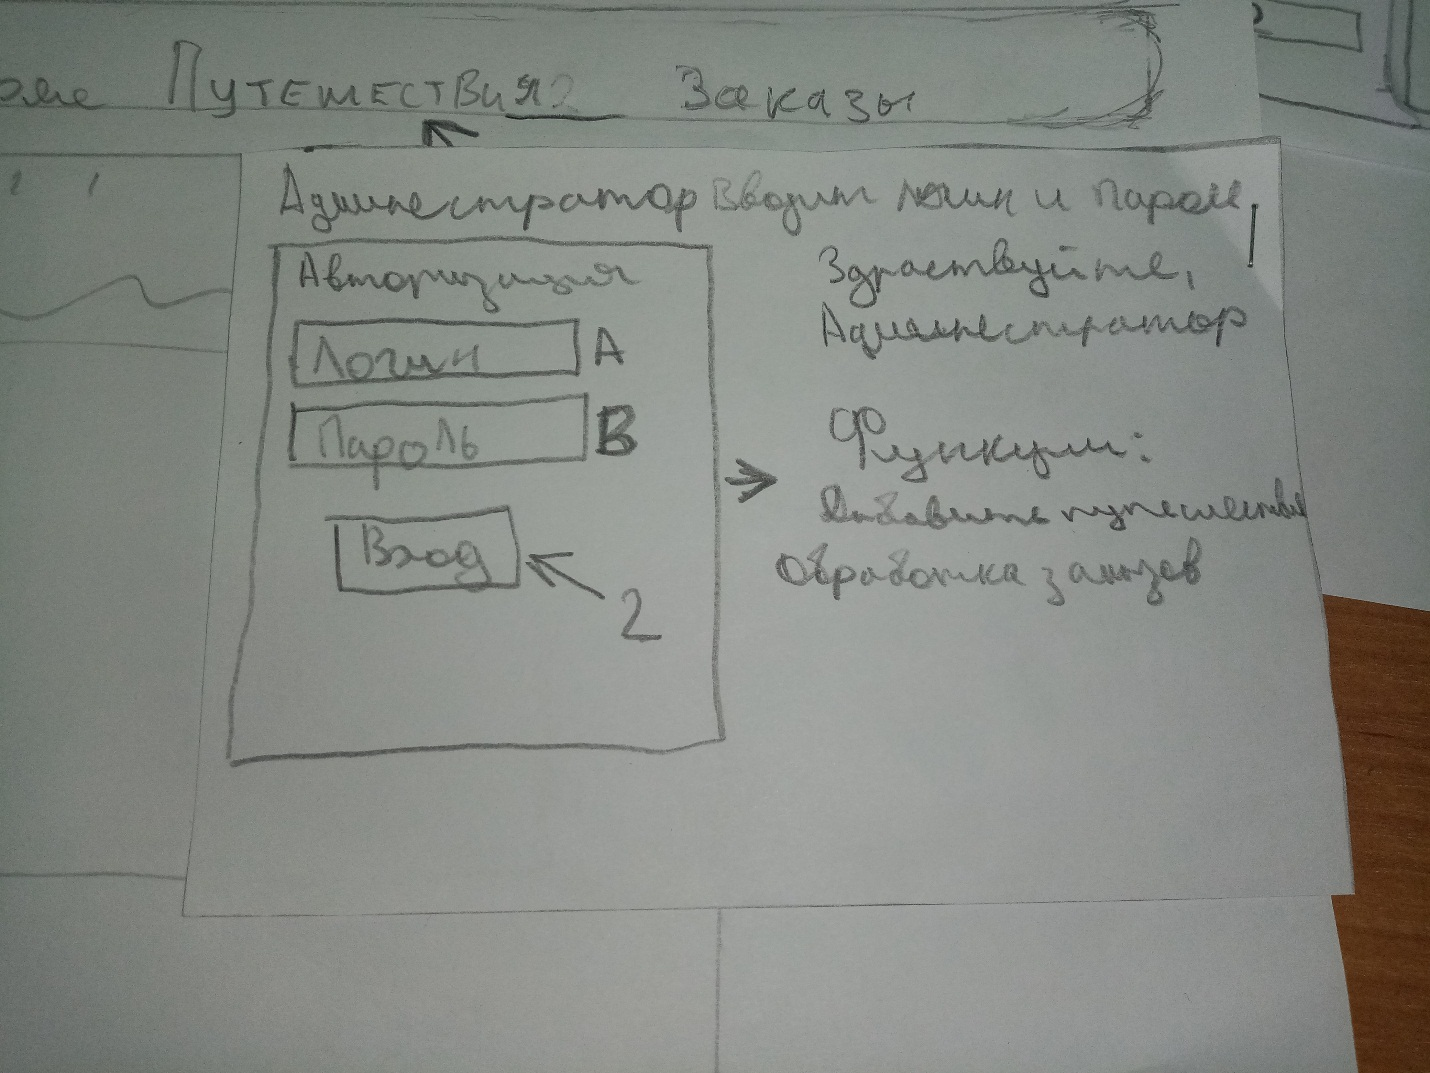 Путешествия Заказы
Администратор вводит логин и пароль
Авторизация
Логин A
Пароль B
Вход
2
Здраствуйте,
Администратор
Функции:
Добавить путешествие
Обработка заказов